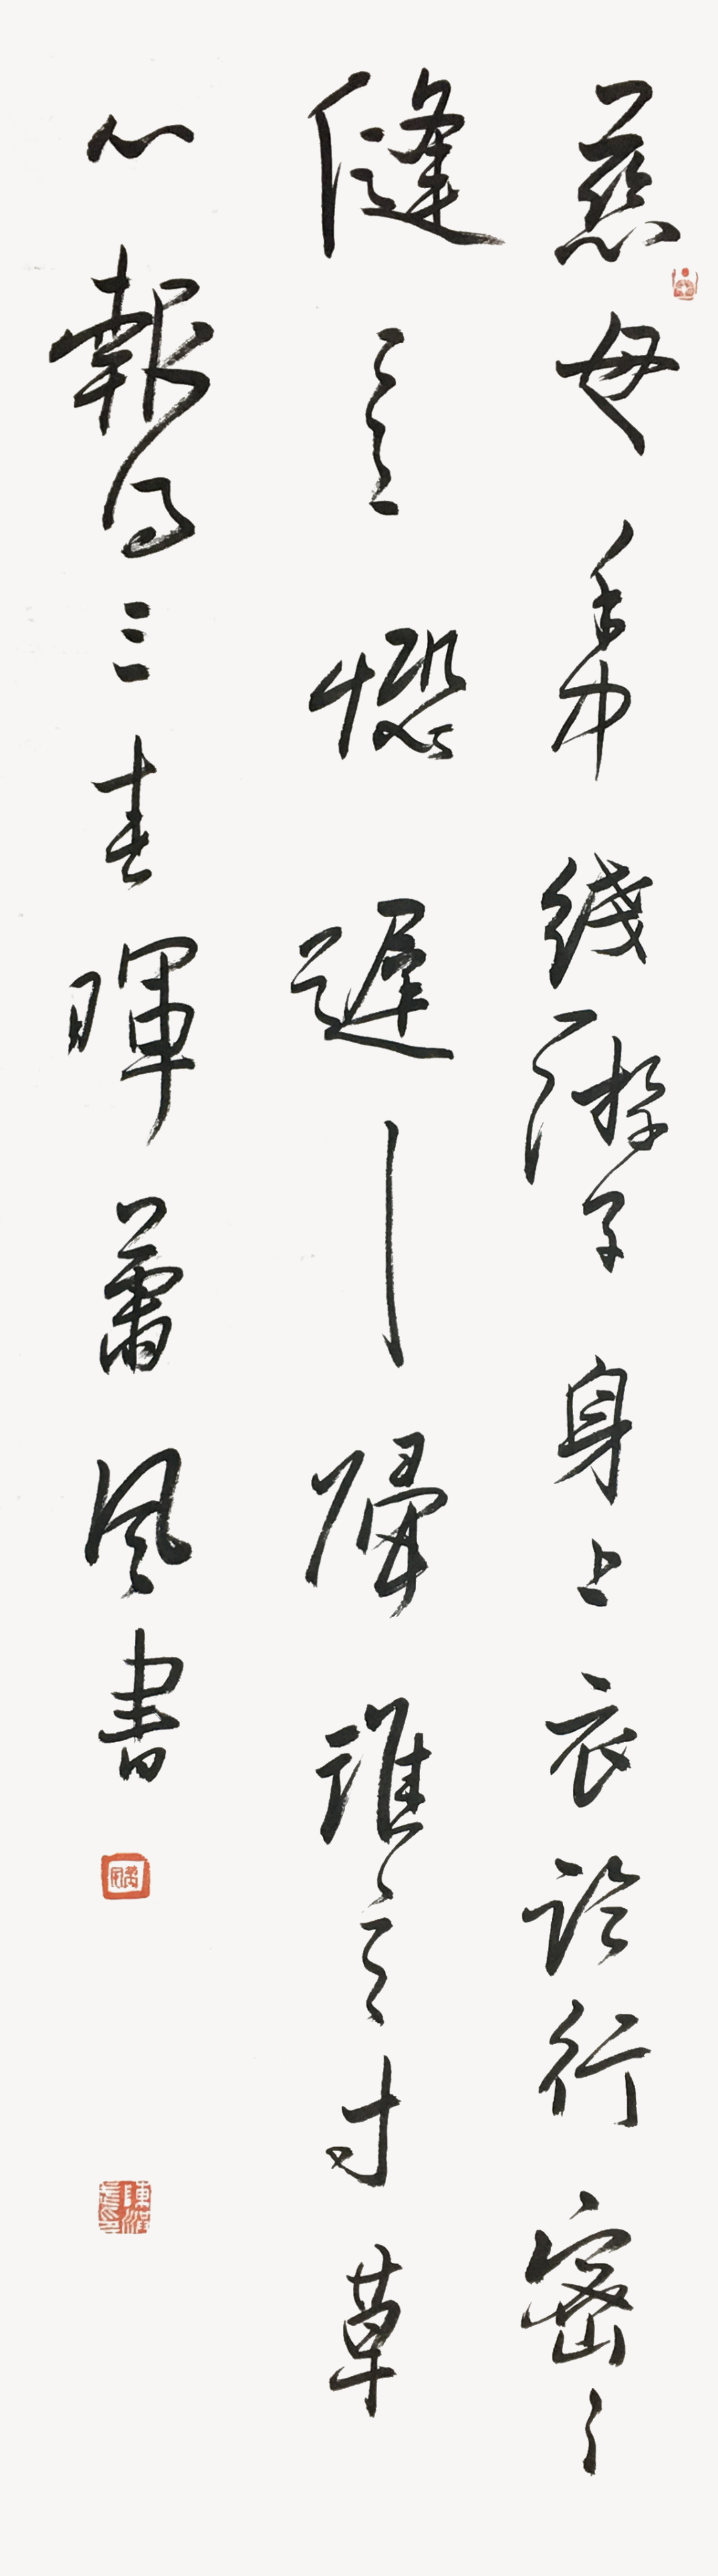 慈母手中綫游子身上衣臨行密〻
縫意恐遲〻歸誰言寸草
心報得三春暉蕭風書